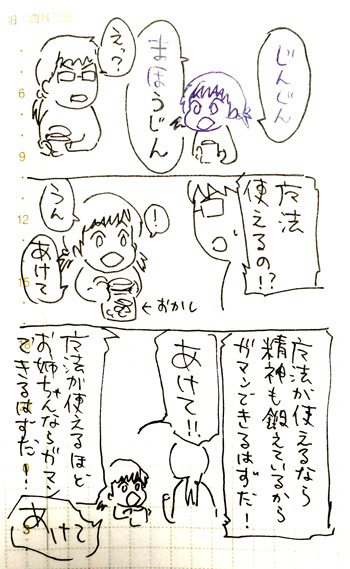 じんじん
まほうじん
えっ?
6
9
12
广法
使えるの!?
!
うん
あけて
←おかし
广法が使えるなら
精神も鍛えているから
ガマンできるはずだ!
あけて!!
广法が使えるほど
お姉ちゃんならガマン
できるはずだ!
あけて